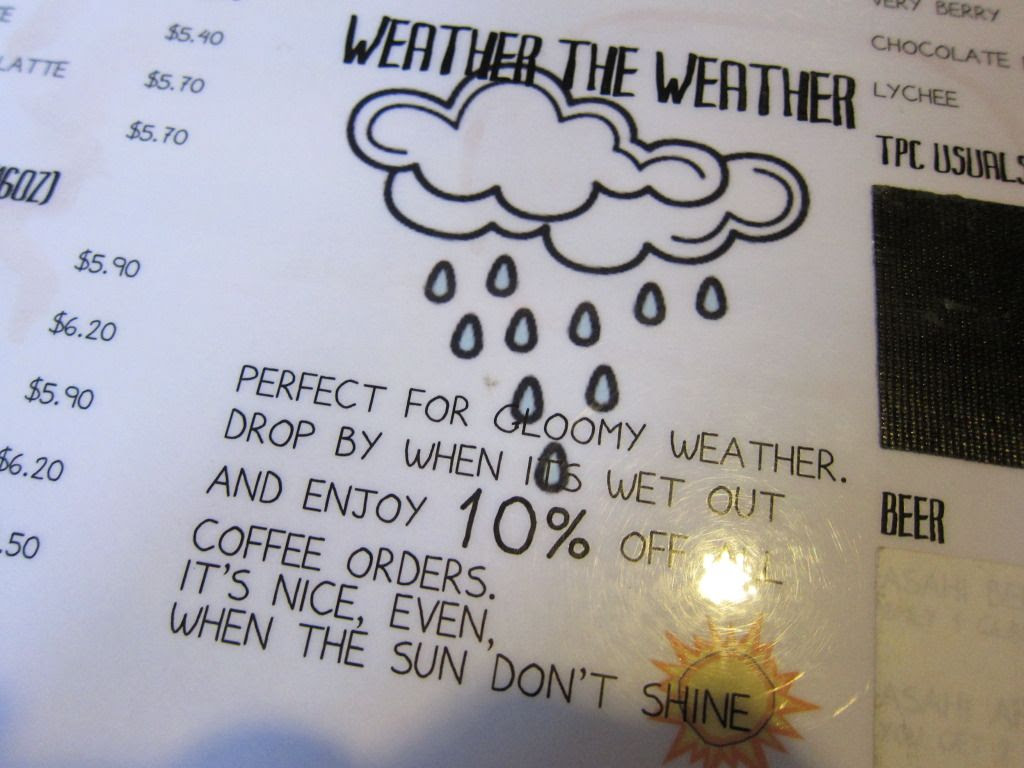 $5.40
LATTE $5.70
$5.70
$5.90
$6.20
$5.90
$6.20
.50
WEATHER THE WEATHER
PERFECT FOR GLOOMY WEATHER.
DROP BY WHEN IT'S WET OUT
AND ENJOY 10% OFF ALL
COFFEE ORDERS.
IT'S NICE, EVEN,
WHEN THE SUN DON'T SHINE
VERY BERRY
CHOCOLATE
LYCHEE
TPC USUALS
BEER
ASAHI
ASAHI